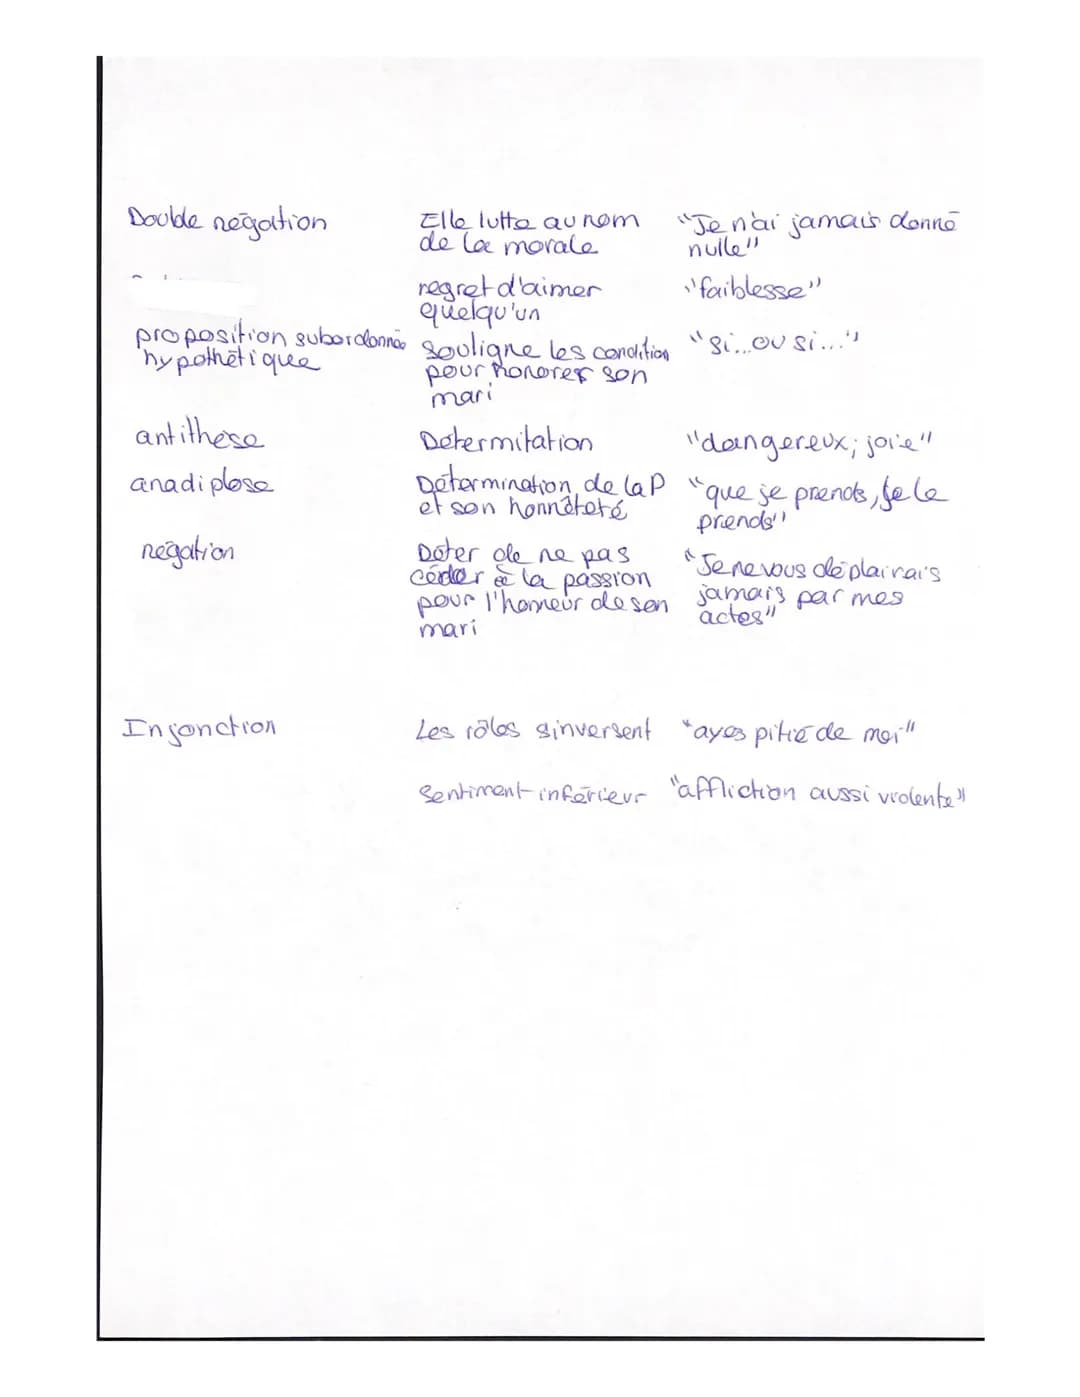 Double négation
Elle lutte au nom
de la morale
"Je n'ai jamais donné
nulle"
regret d'aimer
quelqu'un
"faiblesse"
proposition subordonnée
hypothétique
souligne les condition
pour honorer son
mari
"si...ou si..."
antithese
Détermitation
"dangereux; joie"
anadiplose
Détermination de la P
et son honnêteté
"que je prends, je le
prends"
négation
Doter de ne pas
céder à la passion
pour l'honneur de son
mari
"Je ne vous déplairais
jamais par mes
actes"
Injonction
Les rôles sinversent
"ayes pitié de moi"
sentiment inférieur
"affliction aussi violente"